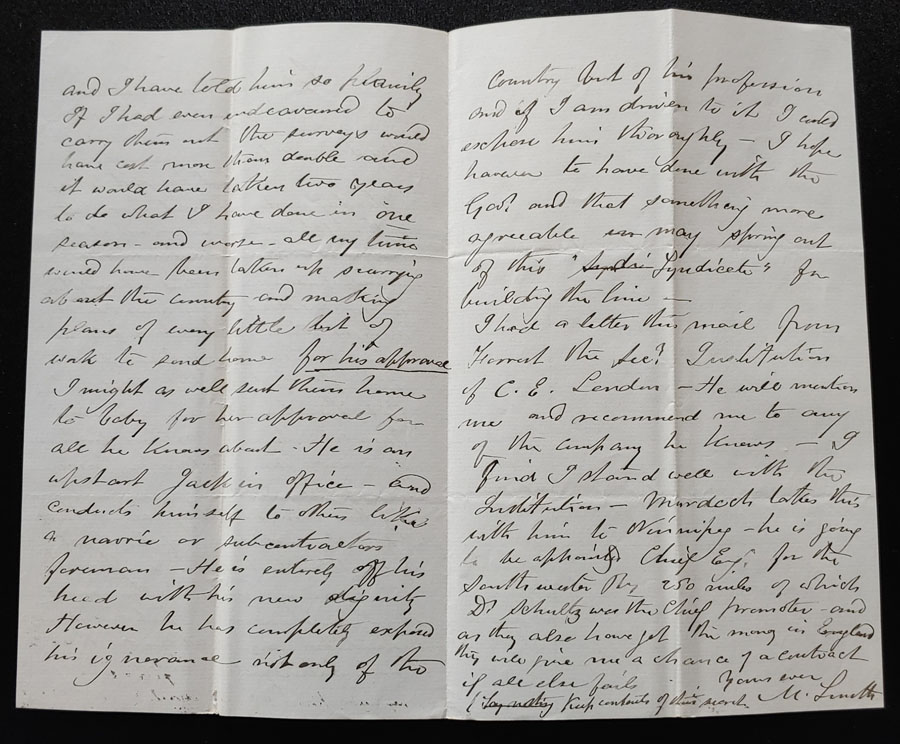 and I have told him so plainly
If I had even endeavoured to
carry them out the surveys would
have cost more than double and
it would have taken two years
to do what I have done in one
season - and worse - all my time
would have been taken up scurrying
about the country and making
plans of every little bit of
work to send home for his approval
I might as well sent them home
to baby for her approval for
all he knows about - He is an
upstart Jack in office - and
conducts himself to others like
a navvie or subcontractors
foreman - He is entirely off his
head with his new dignity
However he has completely exposed
his ignorance not only of the
country but of his profession
and if I am driven to it I could
expose him thoroughly - I hope
however to have done with the
Govt and that something more
agreeable may spring out
of this "Syndicate" for
building the line -
I had a letter this mail from
Forrest the Secy Institution
of C. E. London - He will mention
me and recommend me to any
of the company he knows - I
find I stand well with the
Institution - Murdoch takes this
with him to Winnipeg - he is going
to be appointed Chief Eng. for the
South wester Ry 250 miles of which
Dr Schultz was the Chief promoter - and
as they also have got the money in England
this will give me a chance of a contract
if all else fails Yours ever
Keep contents of this secret M. Smith